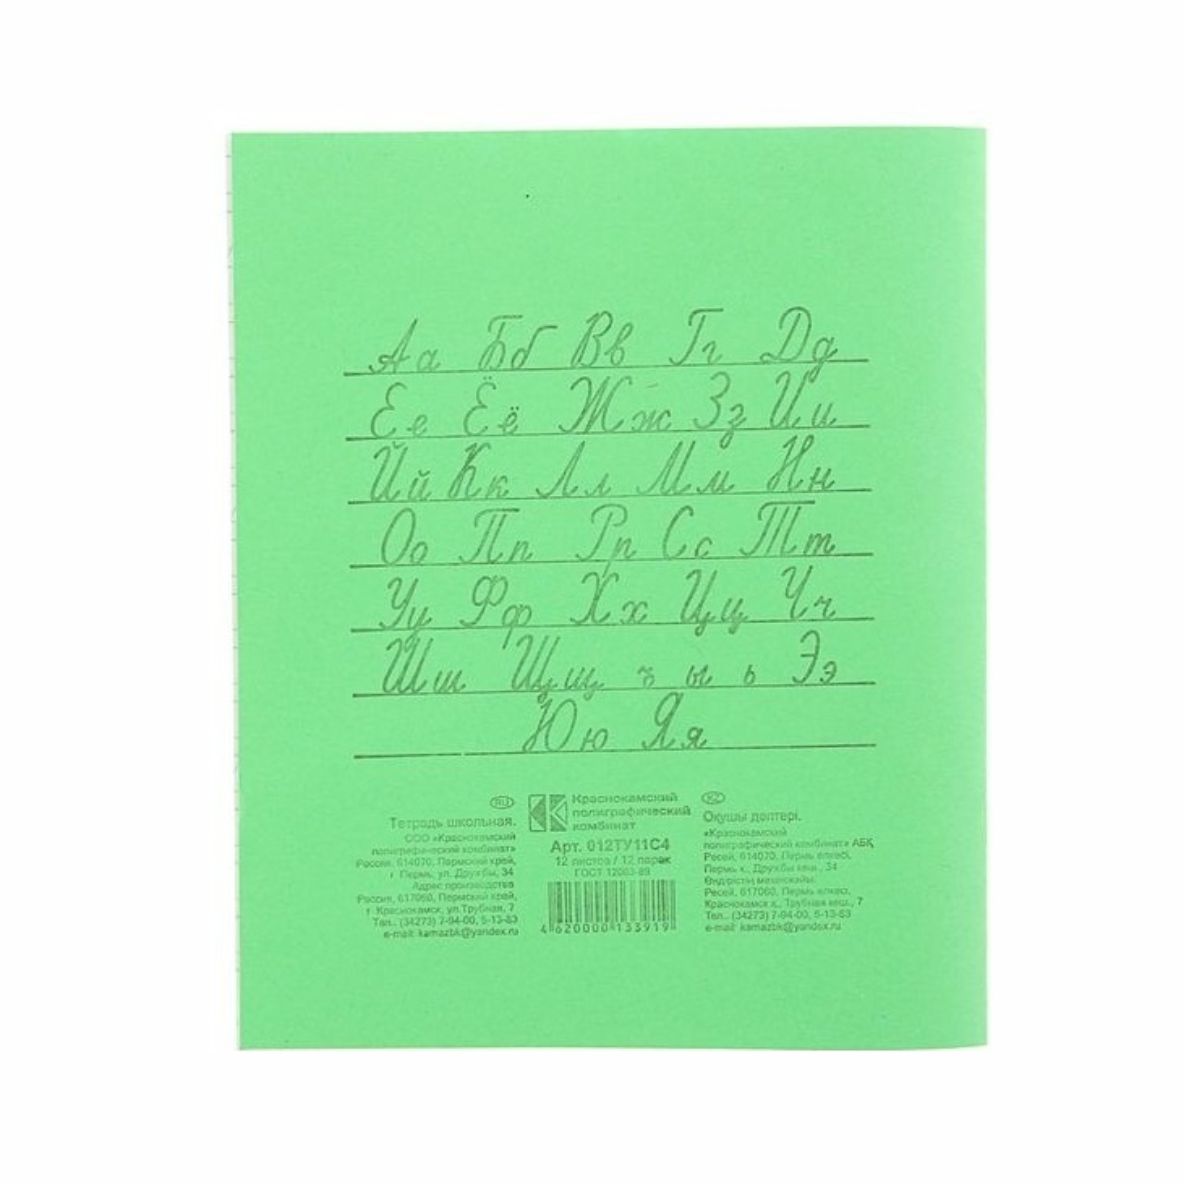 Аа Бб Вв Гг Дд
Ее Ёё Жж Зз Ии
Йй Кк Лл Мм Нн
Оо Пп Рр Сс Тт
Уу Фф Хх Цц Чч
Шш Щщ ъ ы ь Ээ
Юю Яя
RU
Тетрадь школьная.
ООО «Краснокамский
полиграфический комбинат»
Россия, 614070, Пермский край,
г. Пермь, ул. Дружбы, 34
Адрес производства
Россия, 617060, Пермский край,
г. Краснокамск, ул. Трубная, 7
Тел.: (34273) 7-94-00, 5-13-53
e-mail: kamazbk@yandex.ru
Краснокамский
полиграфический
комбинат
Арт. 012ТУ11С4
12 листов / 12 парак
ГОСТ 12063-89
4 620000 133919
KZ
Оқушы дәптері.
«Краснокамский
полиграфический комбинат» АБҚ
Ресей, 614070, Пермь өлкесі,
Пермь к., Дружбы көш., 34
Өндірістің мекенжайы:
Ресей, 617060, Пермь өлкесі,
Краснокамск к., Трубная көш., 7
Тел.: (34273) 7-94-00, 5-13-53
e-mail: kamazbk@yandex.ru